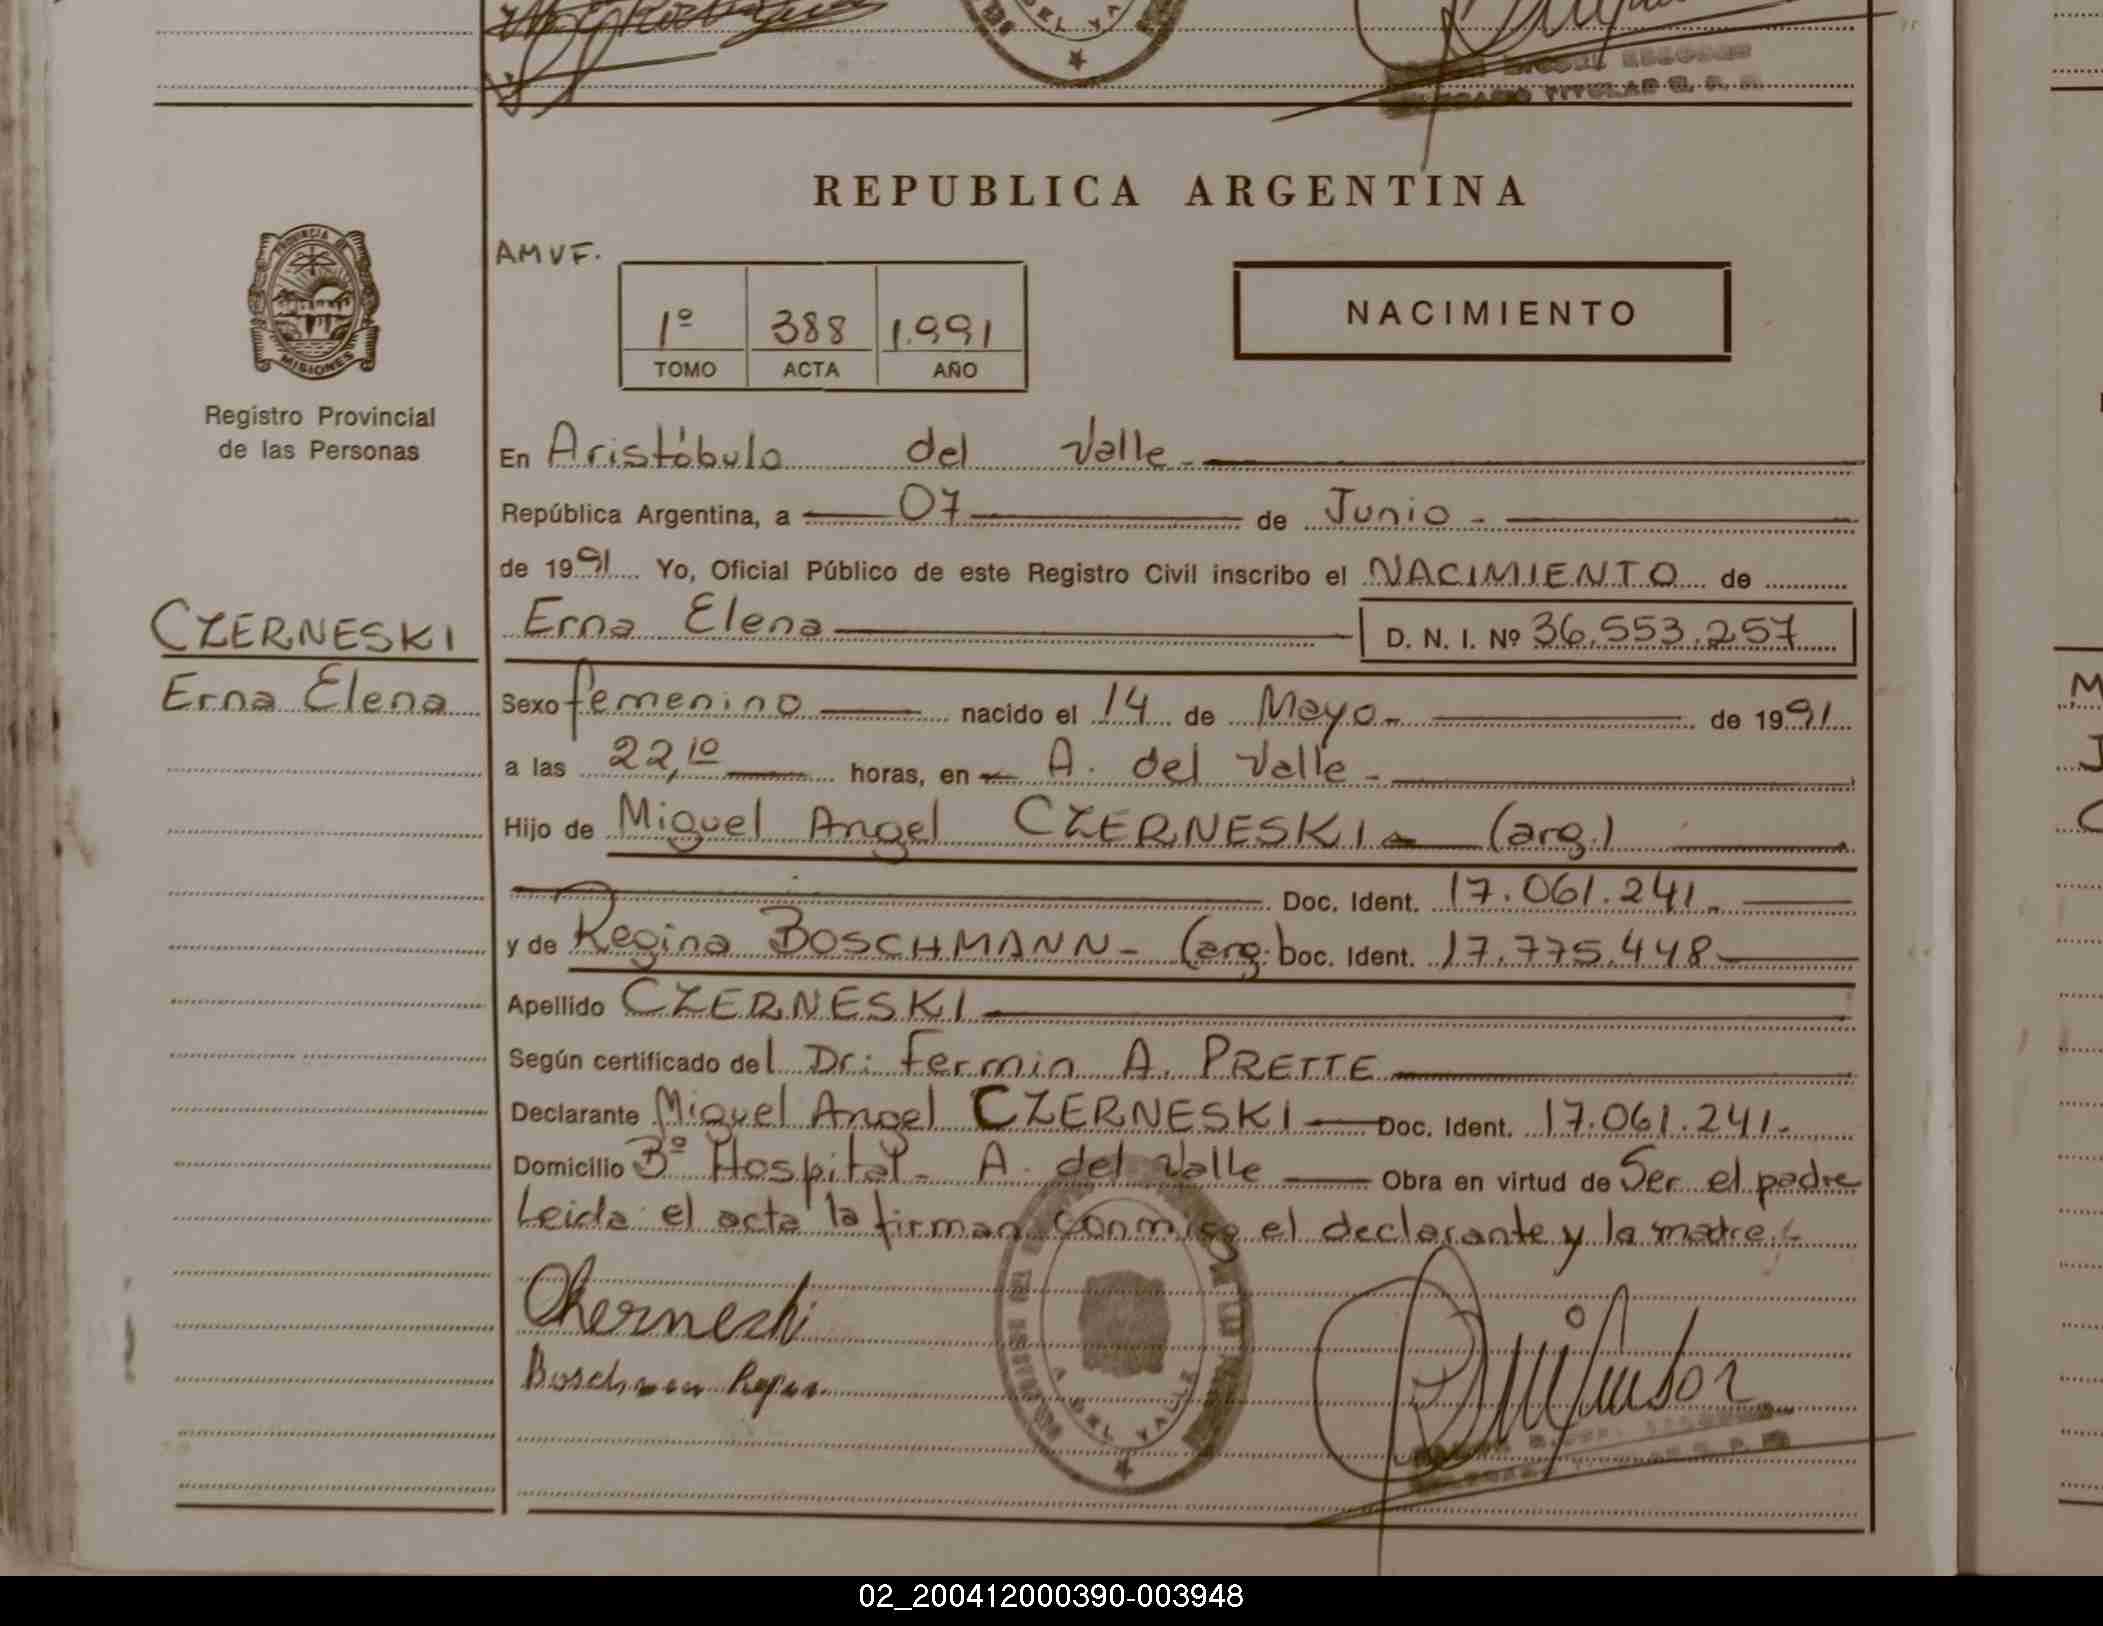 DEL VA
TITULAR
REPUBLICA ARGENTINA
PROVINCIA DE
MISIONES
Registro Provincial
de las Personas
AMVF.
1º 388 1.991
TOMO ACTA AÑO
NACIMIENTO
En Aristóbulo del Valle-
República Argentina, a 07 de Junio-
de 1991 Yo, Oficial Público de este Registro Civil inscribo el NACIMIENTO de
CZERNESKI
Erna Elena
Erna Elena D. N. I. Nº 36.553.257
Sexo femenino nacido el 14 de Mayo- de 1991
a las 22,10 horas, en A. del Valle-
Hijo de Miguel Angel CZERNESKI- (arg.)
Doc. Ident. 17.061.241.-
y de Regina BOSCHMANN- (arg. Doc. Ident. 17.775.448
Apellido CZERNESKI
Según certificado del Dr: Fermin A. PRETTE
Declarante Miguel Angel CZERNESKI Doc. Ident. 17.061.241.-
Domicilio Bº Hospital- A. del Valle Obra en virtud de Ser el padre
Leida el acta la firman conmigo el declarante y la madre.-
Czerneski
Boschman Regina
A. DEL VALLE
02_200412000390-003948